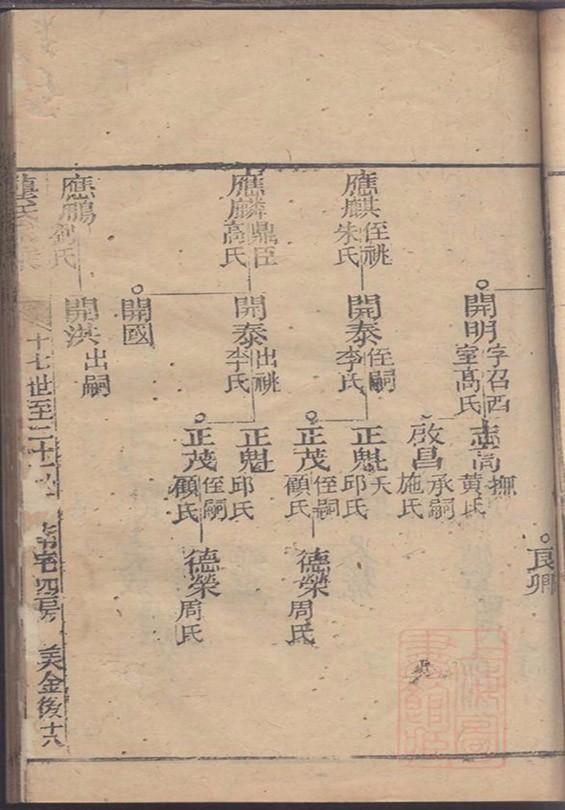 良卿
開明 字召西 室高氏
志高 撫 黃氏
啟昌 承嗣 施氏
應麒 侄祧 朱氏
開泰 侄嗣 李氏
正魁 夭 邱氏
正茂 侄祠 顧氏
德榮 周氏
應麟 鼎臣 高氏
開泰 出祧 李氏
正魁 邱氏
正茂 侄嗣 顧氏
德榮 周氏
開國
應鵬 劉氏
開洪 出嗣
十七世至二十 四房 美金後 十六